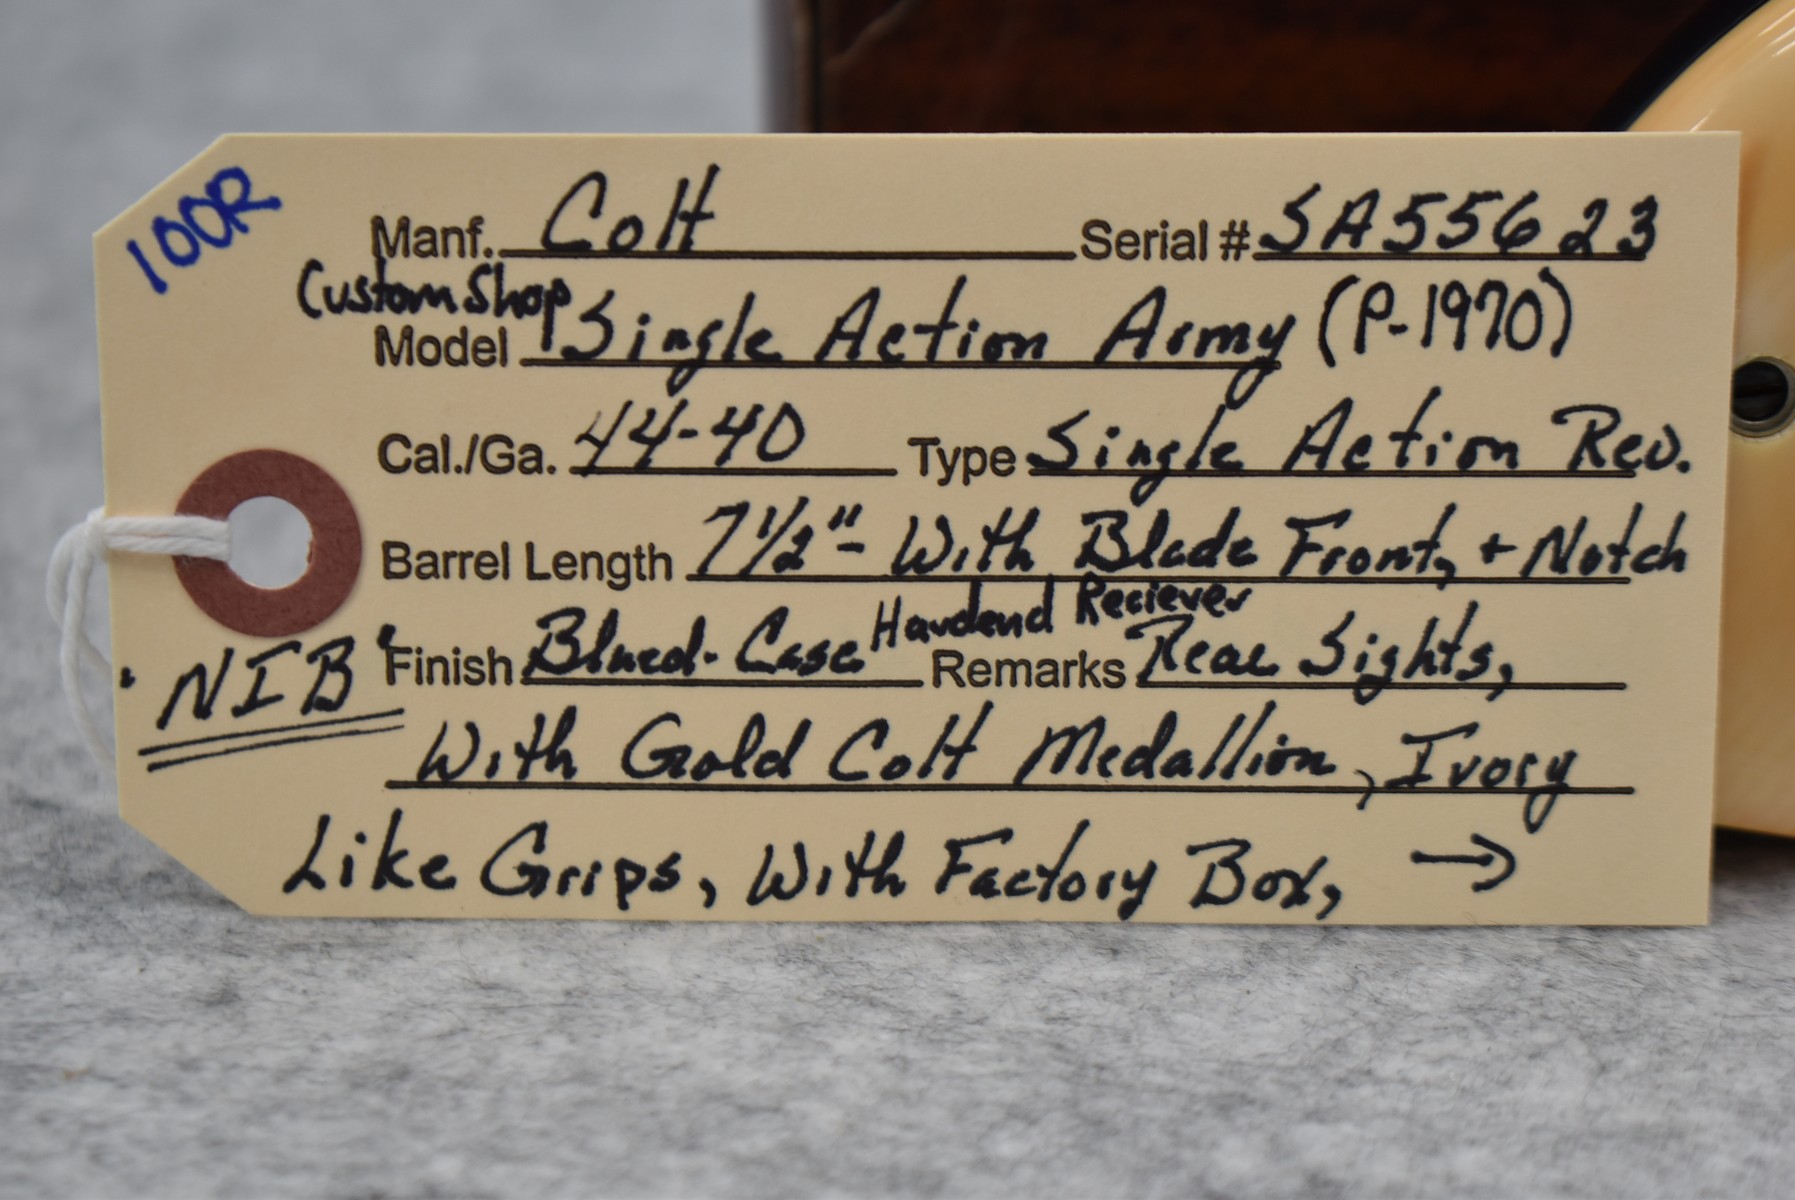 100R
Manf. Colt Serial # SA55623
Custom Shop
Model Single Action Army (P-1970)
Cal./Ga. 44-40 Type Single Action Rev.
Barrel Length 7 1/2" - With Blade Front, + Notch
Hardend Reciever
"NIB" Finish Blued-Case Remarks Rear Sights,
With Gold Colt Medallion, Ivory
Like Grips, With Factory Box, →